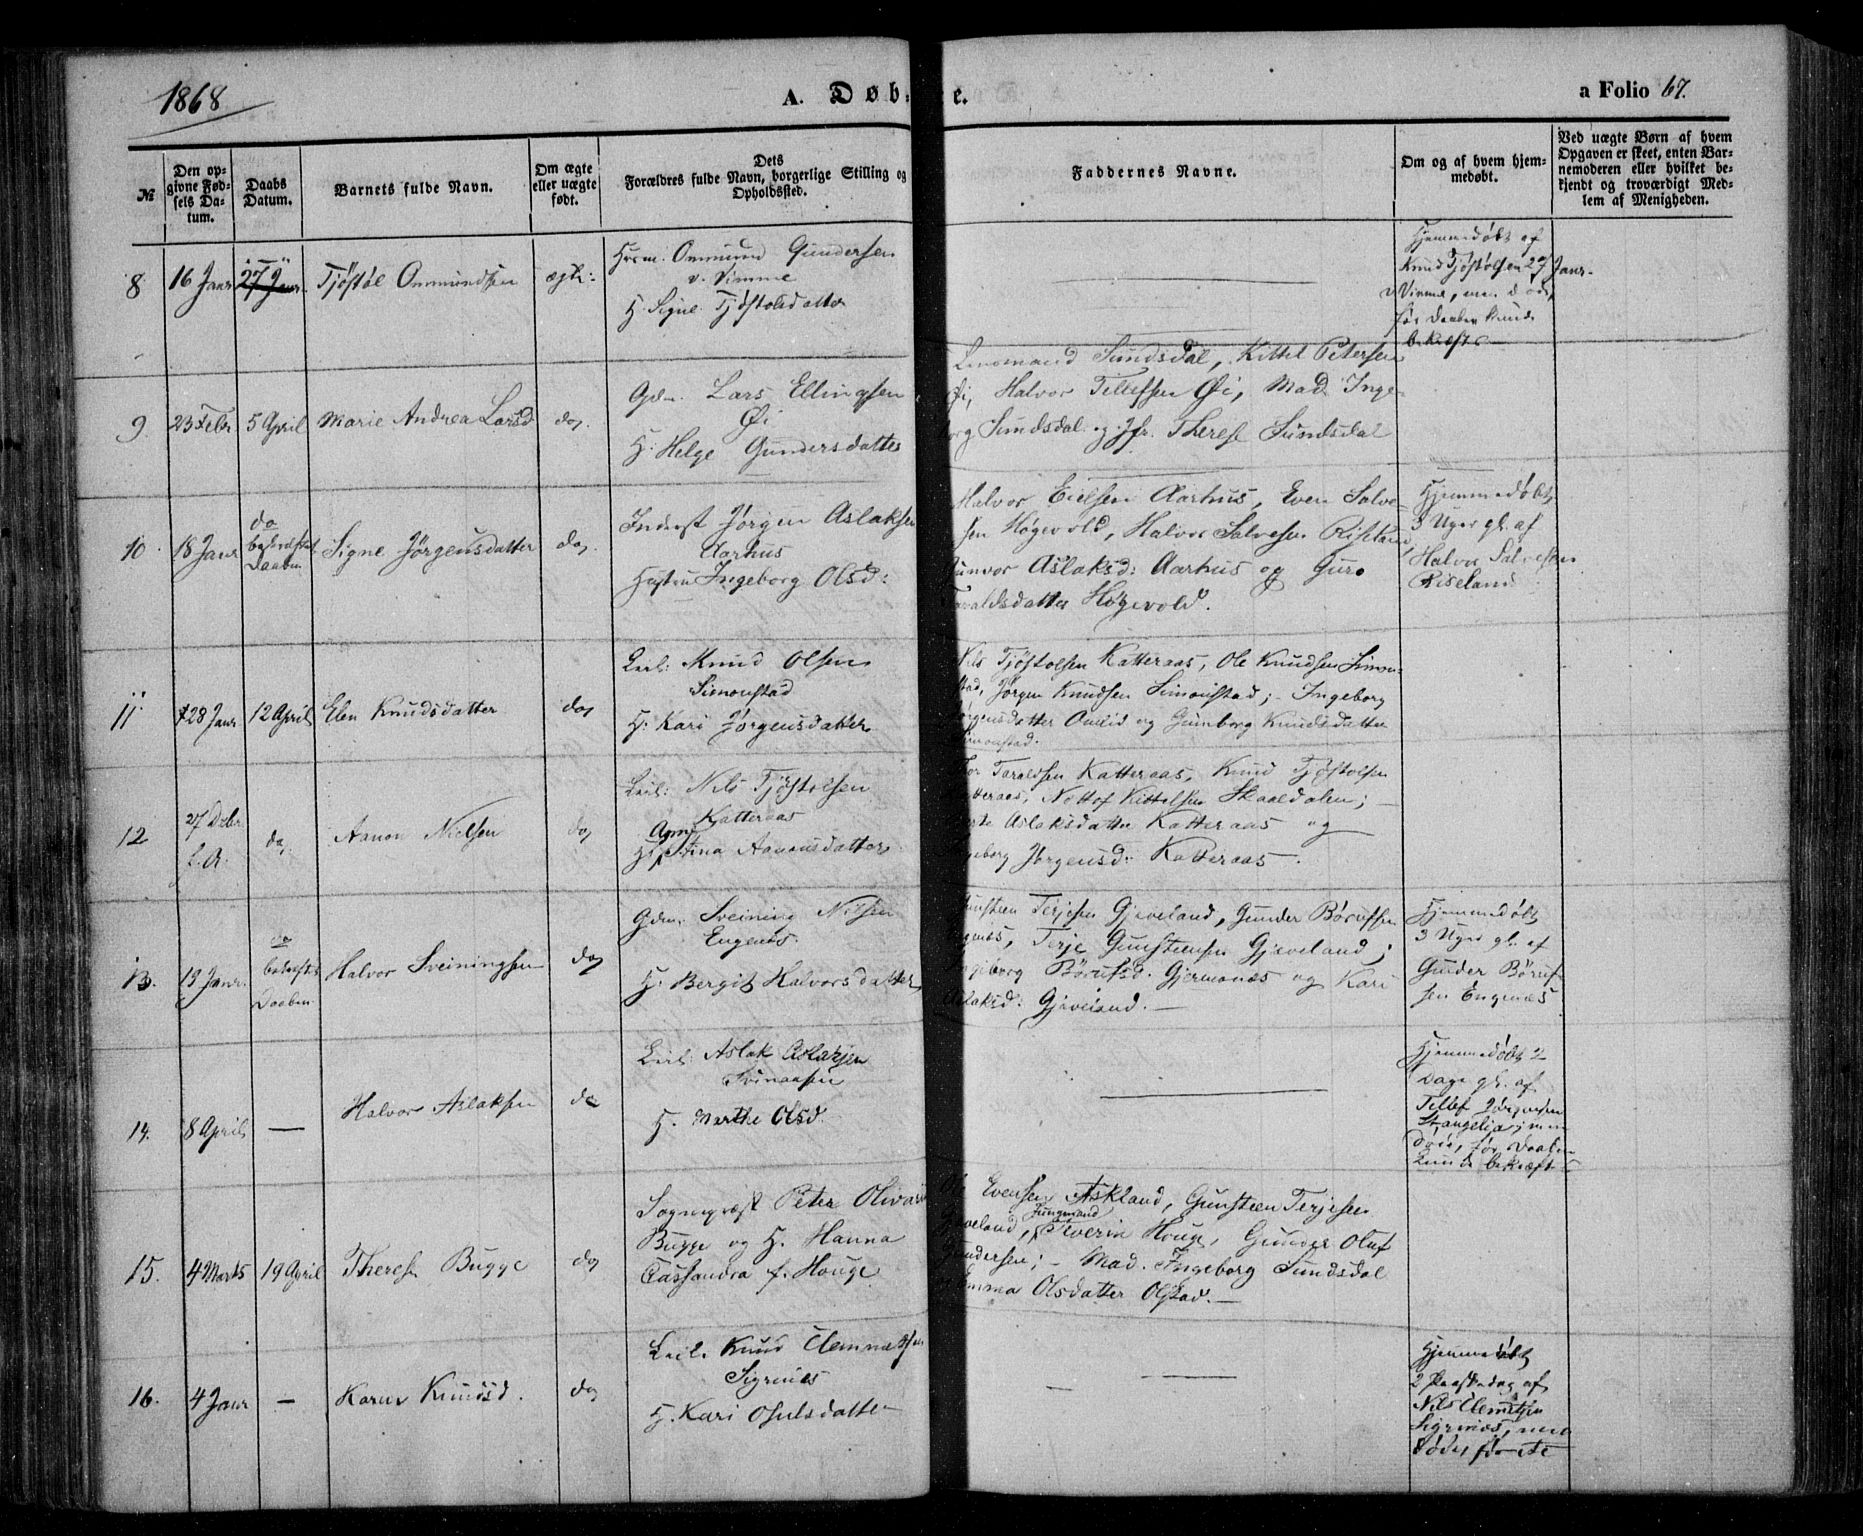 1868
A. Døb- e.
a Folio 67.
№
Den op-
givne Fød-
sels Da-
tum.
Daabs
Datum.
Barnets fulde Navn.
Om ægte
eller uægte
født.
Dets
Forældres fulde Navn, borgerlige Stilling og
Opholdssted.
Faddernes Navne.
Om og af hvem hjem-
medøbt.
Ved uægte Børn af hvem
Opgaven er skeet, enten Bar-
nemoderen eller hvilket be-
kjendt og troværdigt Med-
lem af Menigheden.
8
16 Janr
27 Janr
Tjöstøl Onmundsen
ægte:
Husm. Onmund Gundersen
v. Vimme
H. Signe Tjöstolsdatter
Hjemmedøbt af
Knud Tjöstolsen 27 Janr
v Vimme, men døde,
før Daaben kunde
bekræftes
9
23 Febr
5 April
Marie Andrea Larsd
do
Gdm. Lars Ellingsen
Øi
H. Helge Gundersdatter
Lensmand Sundsdal, Kittel Petersen
Øi, Halvor Tellefsen Øi, Mad Inge-
borg Sundsdal og Jfr. Therese Sundsdal
10
18 Janr
do
bekræftet
Daaben
Signe Jörgensdatter
do
Inderst Jörgen Aslaksen
Aarhus
Hustru Ingeborg Olsd:
Halvor Eielsen Aarhus, Even Salve-
sen Høgevold, Halvor Salvesen Riseland
Gunvor Aslaksd: Aarhus og Guro
Taraldsdatter Høgevold.
Hjemmedøbt
3 Uger gl. af
Halvor Salvesen
Riseland
11
28 Janr
12 April
Elen Knudsdatter
do
Leil: Knud Olsen
Simonstad
H: Kari Jørgensdatter
Nils Tjöstolsen Katteraas, Ole Knudsen Simon-
stad, Jörgen Knudsen Simonstad; - Ingeborg
Jørgensdatter Omlid og Gunborg Knudsdatter
Simonstad.
12
27 Debr
f. A.
do
Aanon Nielsen
do
Leil: Nils Tjöstolsen
Katteraas
H: Anne Stina Aanonsdatter
Thor Taraldsen Katteraas, Knud Tjöstolsen
Katteraas, Nottof Kittelsen Skaaldalen; -
Aslaksdatter Katteraas og
Ingeborg Jørgensd: Katteraas.
13.
19 Janr.
do
bekræftet
Daaben
Halvor Sveiningsen
do
Gdm. Sveining Nilsen
Engenæs.
H: Bergit Halvorsdatter
Gunsteen Terjesen Gjeveland, Gunder Börufsen
Engenæs, Terje Gunsteensen Gjeveland;
Ingeborg Börufsd. Gjermonæs og Kari
Aslaksd: Gjeveland. -
Hjemmedøbt
3 Uger gl. af
Gunder Böruf-
sen Engenæs
14.
8 April
—
Halvor Aslaksen
do
Leil: Aslak Aslaksen
Svinaasen
H. Marthe Olsd.
Hjemmedøbt 2
Dage gl. af
Tellef Jörgensen
Stangelia; men
døde, før Daaben
kunde bekræftes
15.
4 Marts
19 April
Therese Bugge
do
Sognepræst Peter Olivarius
Bugge og H. Hanna
Cassandra f. Houge
Ole Evensen Askland, Gunsteen Terjesen
Gjeveland, Jungmand Severin Houge, Gunder Oluf
Gundersen; - Mad. Ingeborg Sundsdal
Emma Olsdatter Olstad. -
16.
4 Janr
—
Karen Knudsd.
do
Leil. Knud Clemmetsen
Sigrinæs
H. Kari Osulsdatter
Hjemmedøbt
2 Paaskedag af
Nils Clemetsen
Sigrinæs, men
døde før